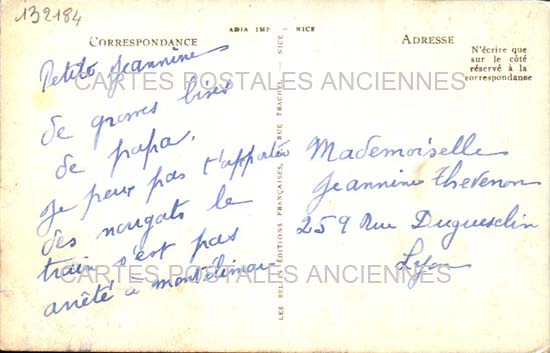 132184
ADIA IMP - NICE
CORRESPONDANCE
ADRESSE
N'écrire que
sur le côté
réservé à la
correspondance
Petite Jeannine
de grosses bises
de papa.
Je peux pas t'apporter
des nougats le
train s'est pas
arrêté a montélimar
Mademoiselle
Jeannine Thevenon
259 Rue Duguesclin
Lyon
LES BELLES ÉDITIONS FRANÇAISES, RUE TRACHEL - NICE
CARTES POSTALES ANCIENNES
CARTES POSTALES ANCIENNES